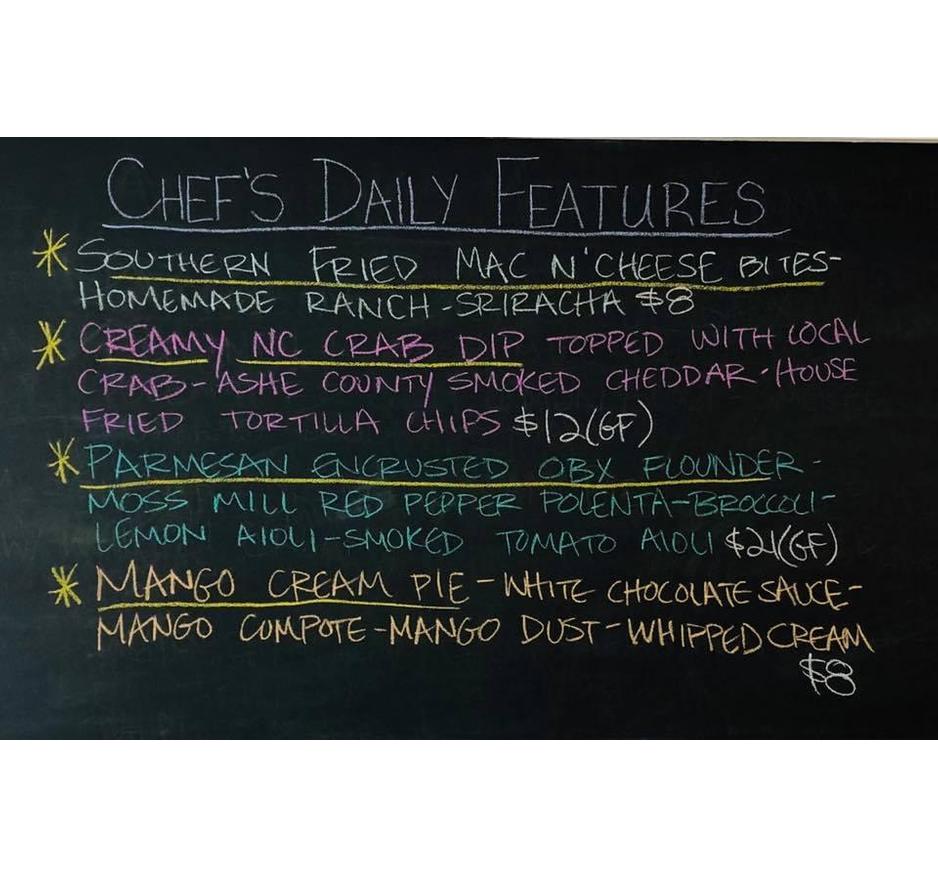 CHEF'S DAILY FEATURES
* SOUTHERN FRIED MAC N'CHEESE BITES-
HOMEMADE RANCH-SRIRACHA $8
* CREAMY NC CRAB DIP TOPPED WITH LOCAL
CRAB-ASHE COUNTY SMOKED CHEDDAR-HOUSE
FRIED TORTILLA CHIPS $12(GF)
* PARMESAN ENCRUSTED OBX FLOUNDER-
MOSS MILL RED PEPPER POLENTA-BROCCOLI-
LEMON AIOLI-SMOKED TOMATO AIOLI $21(GF)
* MANGO CREAM PIE-WHITE CHOCOLATE SAUCE-
MANGO COMPOTE-MANGO DUST-WHIPPED CREAM
$8